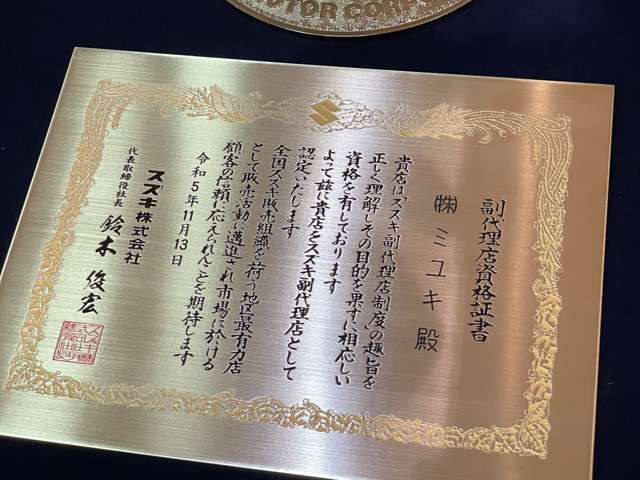 MOTOR CORP
副代理店資格証書
㈱ ミユキ 殿
貴店は、スズキ副代理店制度の趣旨を
正しく理解し、その目的を果すに相応しい
資格を有しております
よって茲に貴店をスズキ副代理店として
認定いたします
全国スズキ販売組織を荷う地区最有力店
として販売活動に邁進され市場に於ける
顧客の信頼に応えられんことを期待します
令和5年11月13日
スズキ株式会社
代表取締役社長 鈴木 俊宏